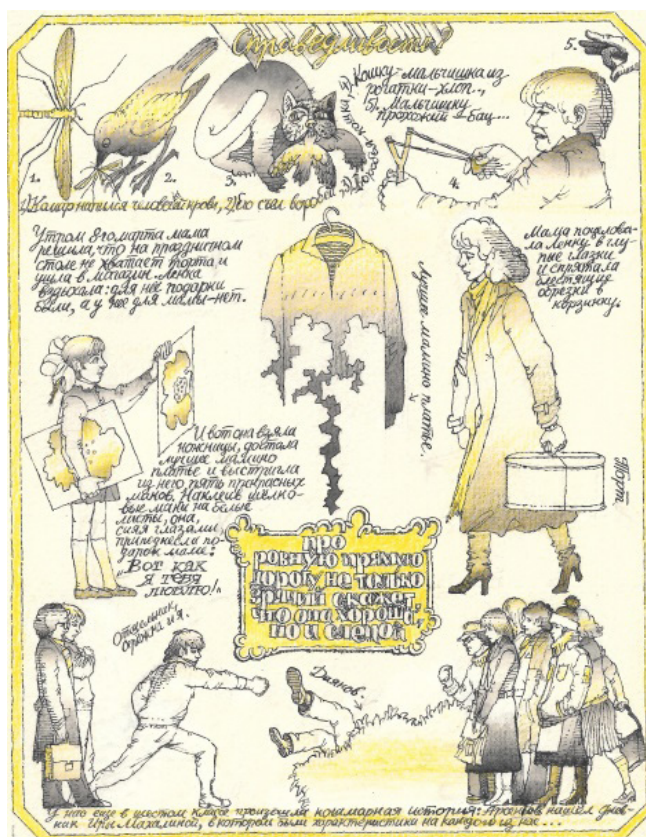 Справедливость!
4) Кошку-мальчишка из
рогатки-хлоп...
5) Мальчишку
прохожий-бац...
1.
2.
3.
4.
5.
1) Комар напился человечьей крови, 2) его съел воро
бей, 3)
Утром 8го марта мама
решила, что на праздничном
столе не хватает торта и
ушла в магазин. Ленка
вздыхала: для неё подарки
были, а у неё для мамы-нет.
Лучшее мамино платье.
Мама поцелова-
ла Ленку в глу-
пые глазки
и спрятала
блестящие
обрезки в
корзинку.
И вот она взяла
ножницы, достала
лучшее мамино
платье и выстригла
из него пять прекрасных
маков. Наклеив шелко-
вые маки на белые
листы, она,
сияя глазами,
преподнесла по-
дарок маме:
„Вот как
я тебя
люблю!"
Торт
про
ровную прямую
дорогу не только
зрячий скажет,
что она хороша,
но и слепой
Отдельник,
Сережка и я.
Даянов.
У нас еще в шестом классе произошла кошмарная история: нашел днев-
ник Иры Махалиной, в котором были характеристики на каждого из нас...